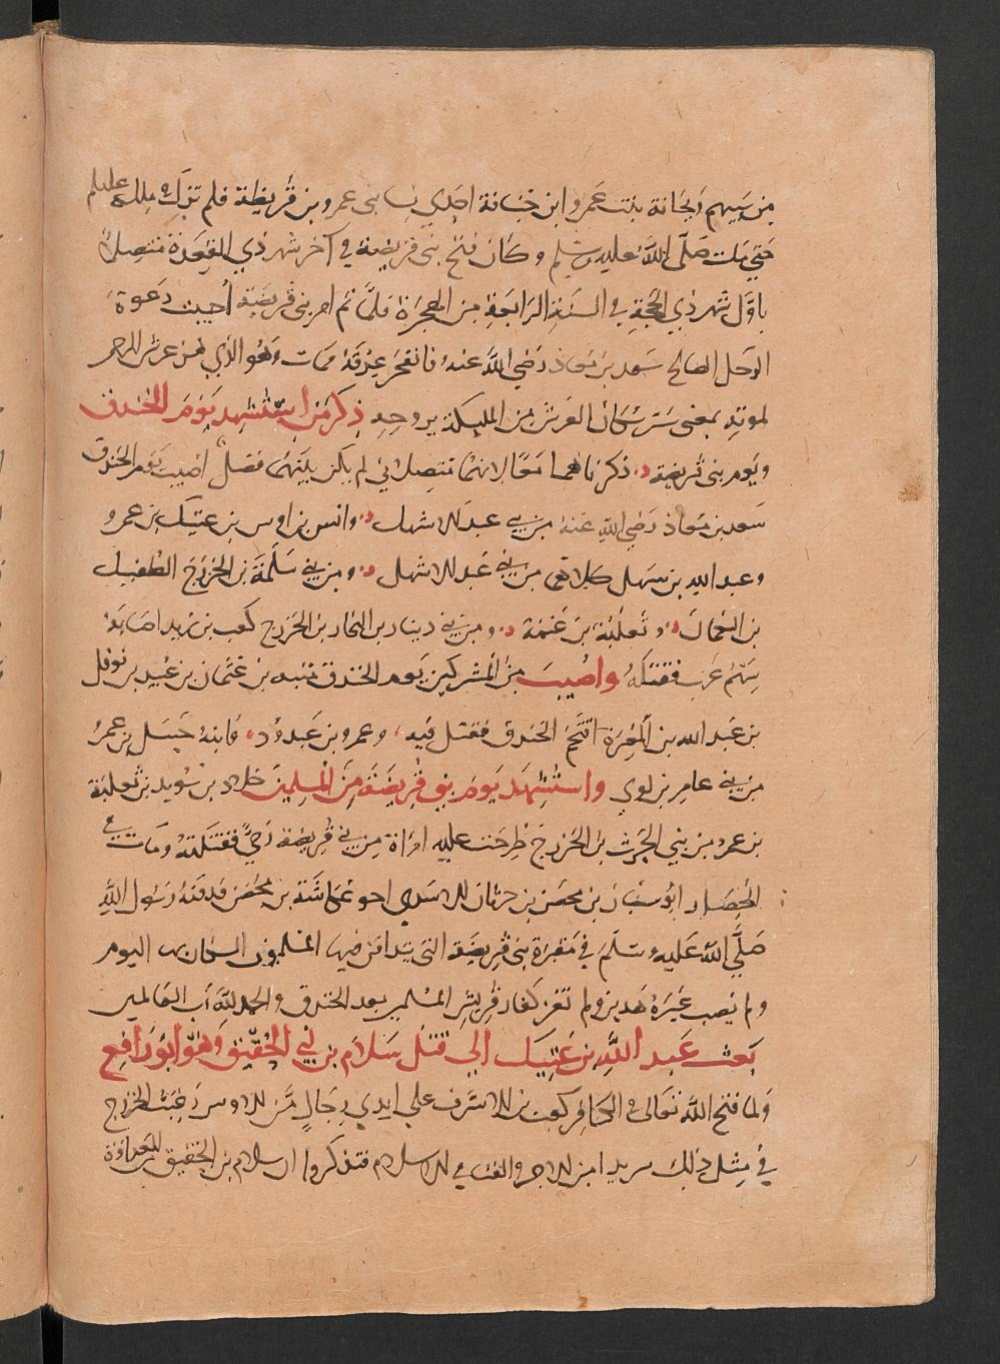 من سبيهم ريحانة بنت عمرو ابن خنافة احدي نسا بنى عمرو بن قريظة فلم تزل في ملكه عليه
حتي مات صلى الله عليه وسلم وكان فتح بنى قريضة في آخر شهر ذي القعدة متصلا
باول شهر ذي الحجة في السنة الرابعة من الهجرة فلما تم امر بنى قريضة اجيبت دعوة
الرجل الصالح سعد بن معاذ رضي الله عنه فانفجر عرقه فمات وهو الذي اهتز عرش الرحمن
لموته بمعنى سر سكان العرش من المليكة بروحه ذكر من استشهد يوم الخندق
ويوم بنى قريضة ذكرناهما معا لانهما متصلا في لم يكن بينهما فصل اصيب يوم الخندق
سعد بن معاذ رضي الله عنه من بني عبد الاشهل وانس بن اوس بن عتيك بن عمرو
وعبد الله بن سهل كلاهما من بني عبد الاشهل ومن بني سلمة بن الخزرج الطفيل
بن النعمان وثعلبة بن غنمة ومن بني دينار بن النجار بن الخزرج كعب بن زيد اصابه
سهم غرب فقتله واصيب من المشركين يوم الخندق منبه بن عثمان بن عبيد بن نوفل
بن عبد الله بن المغيرة اقتحم الخندق فقتل فيه وعمرو بن عبدود وابنه حسل بن عمرو
من بني عامر بن لوي واستشهد يوم بني قريضة من المسلمين خلاد بن سويد بن ثعلبة
بن عمرو من بني الحرث بن الخزرج طرحت عليه امراة من بني قريضة رحى فقتلته ومات في
الحصار ابو سنان بن محصن بن حرثان الاسدي اخو عكاشة بن محصن فدفنه رسول الله
صلى الله عليه وسلم في مقبرة بنى قريضة التي يتدافن فيها المسلمون السكان بها اليوم
ولم يصب غير هذين ولم تغز كفار قريش المسلمين بعد الخندق والحمد لله رب العالمين
بعث عبد الله بن عتيك الي قتل سلام بن ابي الحقيق وهو ابو رافع
ولما فتح الله تعالى في الكافر كعب بن الاشرف علي ايدي رجال من الاوس رغبت الخزرج
في مثل ذلك مريدا من الاجر والغنا في الاسلام فتذكروا ان سلام بن الحقيق العداوة